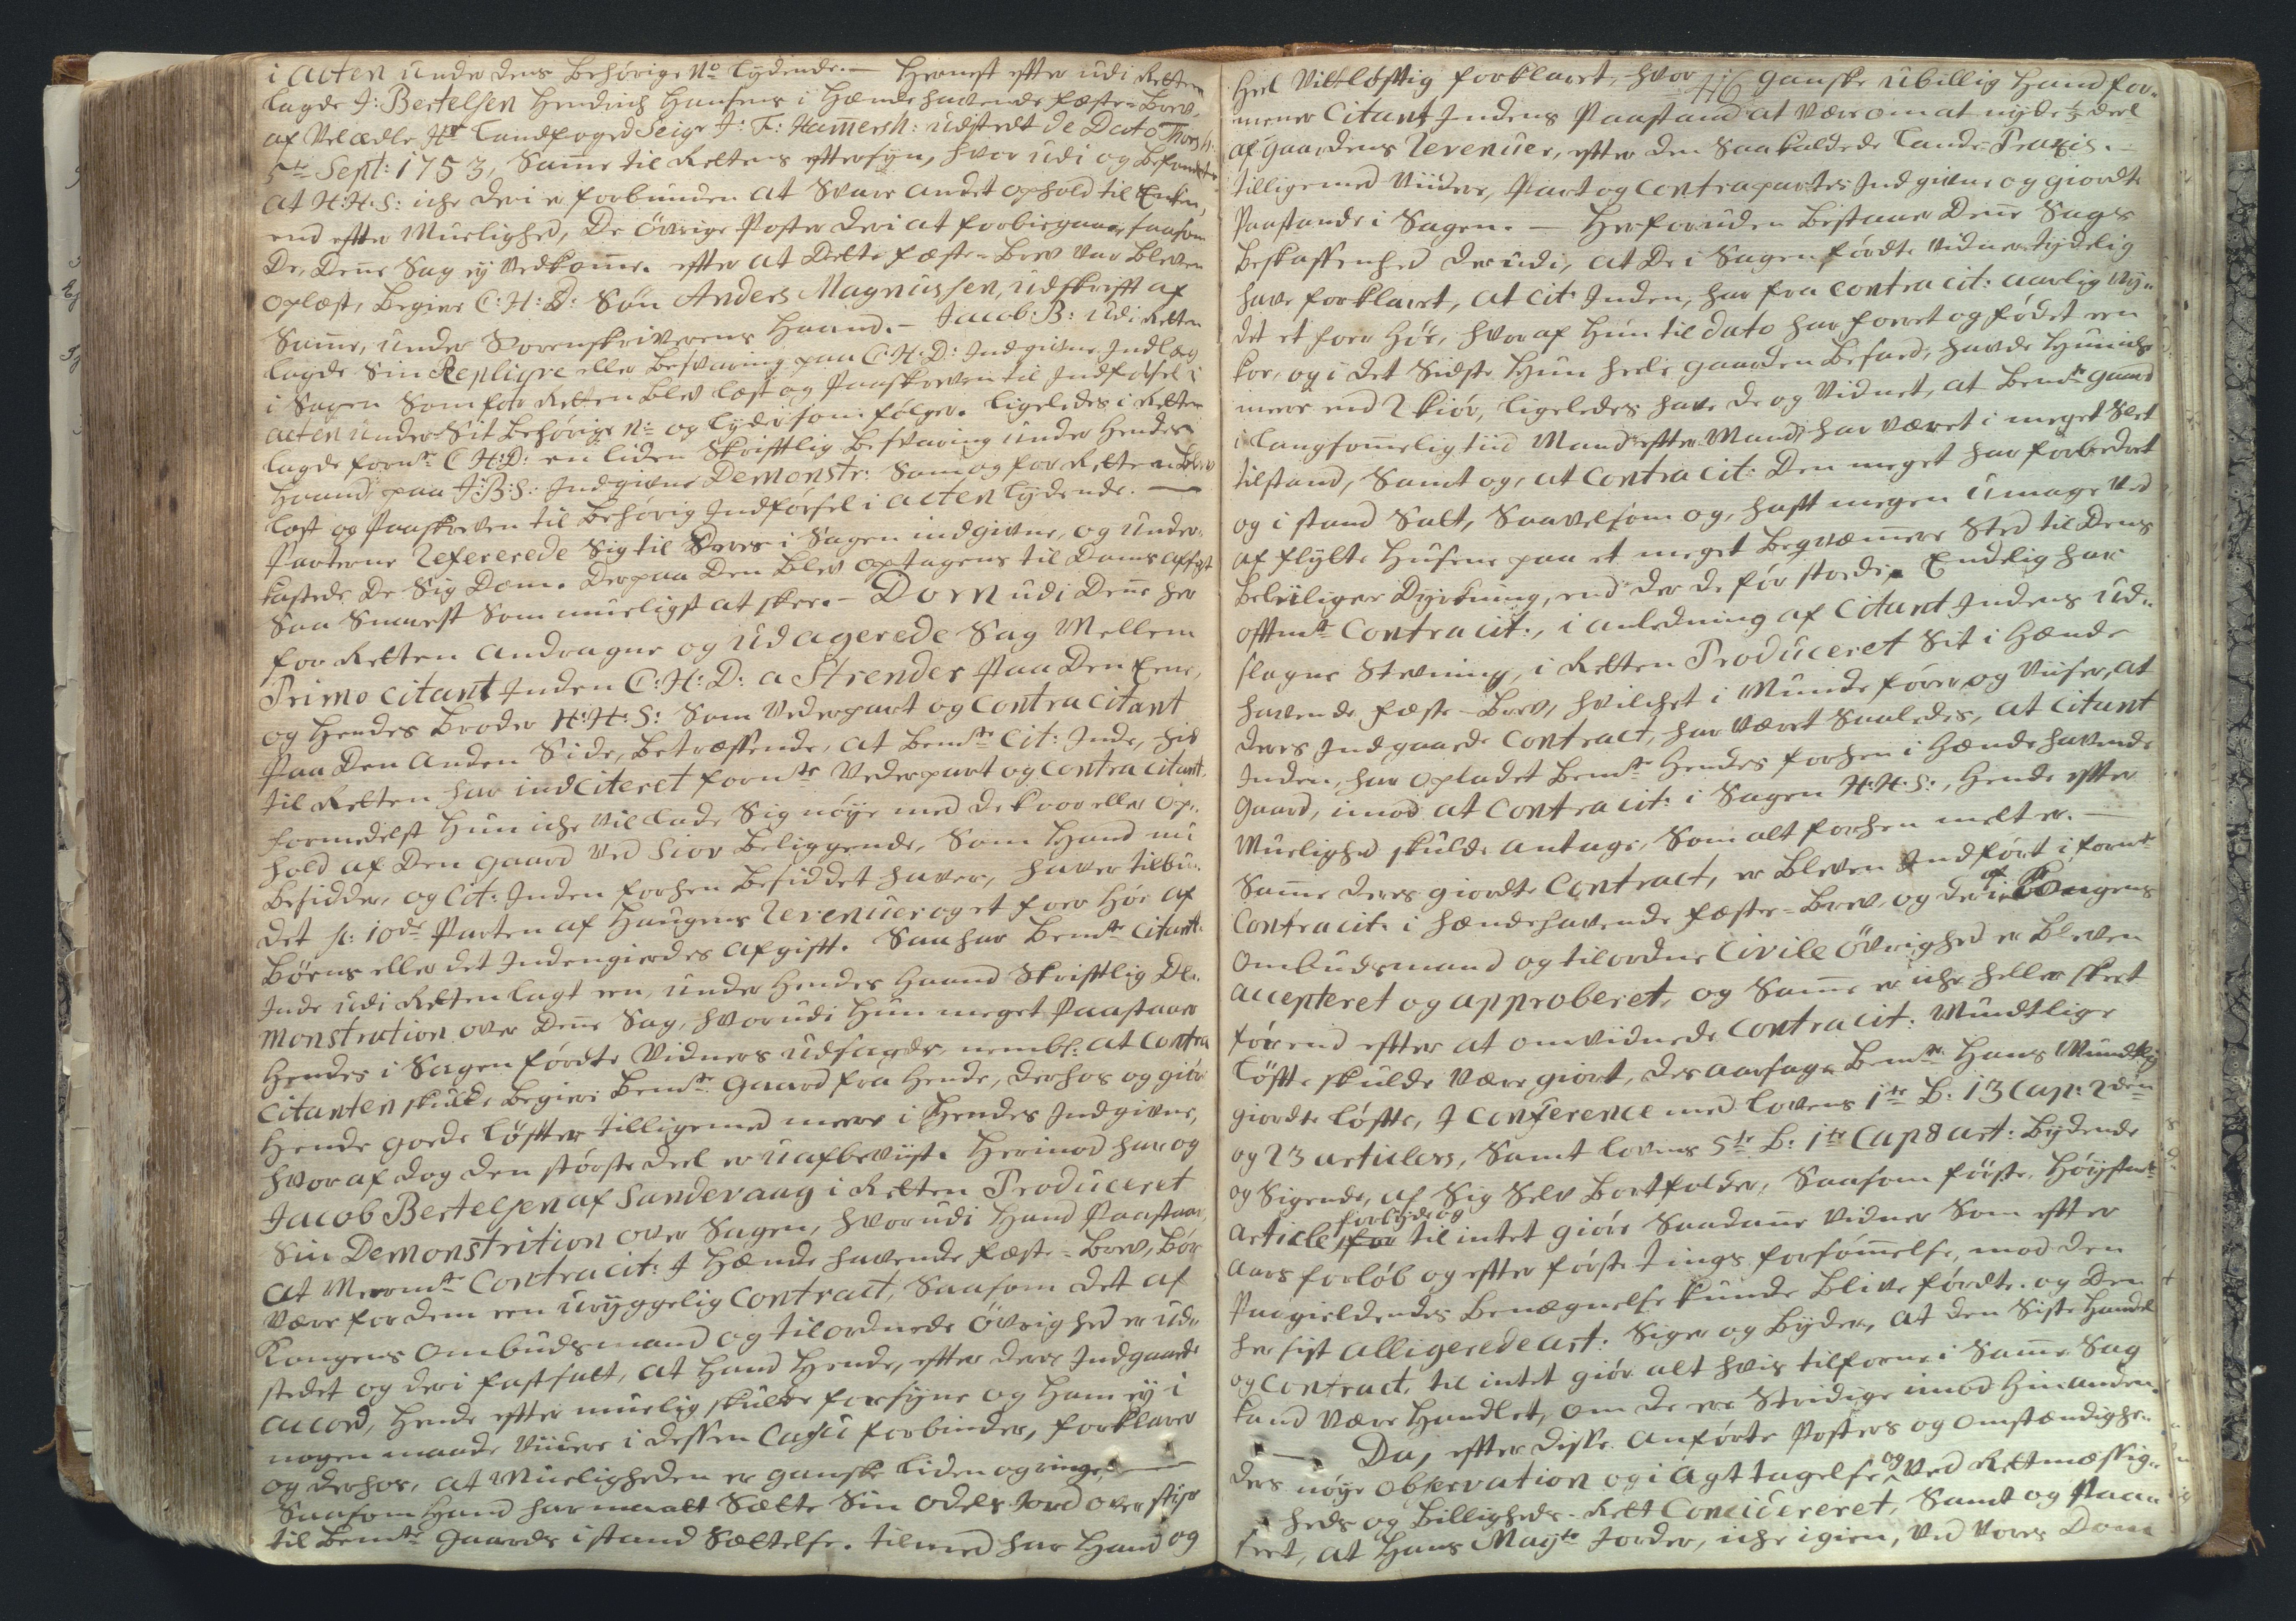 i acten under dens behörige No lydende. — Hernest efter udi Retten
lagde J: Bertelsen Hendrich Hansens i Hænde havende fæste-Brev,
af Velædle Hr Landfoged Seigr J: F: Hamersh: udstedt de Dato Thorsh:
5te Sept: 1753, Samme til Rettens eftersyn, hvor udi og befandtes
at H:H:S: iche deri er forbunden at svare andet ophold til Enken,
end efter Muelighed, de övrige Poster deri at forbiegaaes saasom
de denne Sag ej vedkomme. efter at dette fæste-Brev var bleven
oplæst, begiær C:H:D: Sön Anders Magnussen, udskrift af
Samme, under Sorenskriverens Haand. — Jacob: B: udi Retten
lagde sin Repliqve eller besvaring paa C:H:D: Indgivne Indlæg
i Sagen som for Retten blev læst og Paaskreven til Indförsel i
acten under sit behörige No og lyder som fölger. ligeledes i Retten
lagde fornte C:H:D: en liden skriftlig besvaring under hendes
Haand, paa J:B:S: Indgivne Demonstr: som og for Retten blev
læst og Paaskreven til behörig Indförsel i acten lydende. —
Parterne Refererede sig til deres i Sagen indgivne, og under-
kastede de sig Dom. Derpaa den blev optagens til Doms afsigt
saa snarest som mueligst at skee. — Dom udi denne her
for Retten andragne og udagerede Sag Mellem
Primo citant Inden C:H:D: a Strender paa den Eene,
og hendes broder H:H:S: som vederpart og contra citant
paa den anden Side, betræffende, at bemte cit: Inde, hid
til Retten har indciteret fornte vederpart og contra citant,
formedelst hun iche vil lade sig nöye med de kaar eller op-
hold af den gaard ved Siov beliggende, som Hand nu
besidder, og cit: Inden forhen besiddet haver, haver tilbu-
det sc: 10de Parten af Haugens Revenuer og et foer höe af
Börns eller det Indengierdes afgift. Saa har bemte citant
Inde udi Retten lagt een, under hendes Haand skriftlig De-
monstration over denne Sag, hvorudi hun meget Paastaaer
hendes i Sagen förte vidners udsagde, nembl: at contra
citanten skulde begiere bemte gaard fra hende, derhos og giör
hende goede löfter tilligemed mere i hendes Indgivne,
hvoraf dog den störste deel er uafbeviist. Herimod har og
Jacob Bertelsen af Sandevaag i Retten Produceret
sin Demonstrition over Sagen, hvorudi Hand Paastaar,
at Meermte contra cit: I Hænde havende fæste-Brev, bör
være for dem een uryggelig contract, saasom det af
Kongens ombudsmand og tilordnede övrighed er ud-
stedet og deri fastsatt, at Hand hende, efter deres Indgaaede
accord, hende efter muelig skulde forsyne og ham ej i
nogen maade viidere i dessen casu forbinder, forklarer
og derhos, at Mueligheden er ganske liden og ringe, —
saasom Hand har maatt sætte sin odels Jord over styr
til bemte gaards istand sættelse. tilmed har Hand og
heel vitlöftig forklaret, hvor 416 ganske ubillig Hand for-
mener citant Indens Paastand at være om at nyde 1/3 deel
af gaardens Revenuer, efter den saakaldede Lands-Praxis. —
tilligemed viidere, Part og contraparts Indgivne og giordte
Paastande i Sagen. — Herforuden bestaaer denne Sags
beskaffenhed derudi, at de i Sagen fördte vidner tydelig
have forklaret, at cit: Inden, har fra contra cit: aarlig nÿ-
det et foer höe, hvor af hun til dato har foret og födet een
koe, og i det sidste hun heele gaarden besad, havde hun iche
mere end 2 kiör, ligeledes have de og vidnet, at bemte gaard
i langsommelig tiid Mand efter Mand har været i meget slet
tilstand, samt og, at contra cit: den meget har forbedret
og i stand satt, saavelsom og, haft megen umage ved
af flytte husene paa et meget beqvæmmere sted til dens
beleiligere dyrkning, end der de för stoede. Endelig har
oftmte contra cit:, i anledning af citant Indens ud-
slagne stevning, i Retten Produceret sit i Hænde
havende fæste-Brev, hvilchet i Munde förer og viiser, at
deres Indgaaede contract, har været saaledes, at citant
Inden, har opladet bemte hendes forhen i Hænde havende
gaard, imod at contra cit: i Sagen H:H:S:, hende efter
Muelighed skulde antage, som alt forhen melt er. —
Samme deres giordte contract, er bleven Indfört i fornte
contra cit: i hændehavende fæste-Brev, og deri af Kongens
ombudsmand og tilordne civile övrighed er bleven
accepteret og approberet, og Samme er iche heller skeet
förend efter at omvidnede contra cit: Mundtlige
löfte skulde være giort, des aarsage bemte hans Mundtlig
giordte löfte, I conference med lovens 1te B: 13 Cap: 2den
og 23 articlers, samt lovens 5te B: 1te Cap 8 art: bydende
og sigende, af sig selv bortfalder, saasom förste Höystem:te
article forbyder og til intet giöre saadanne vidner som efter
aars forlöb og efter förste tings forsömmelse, mod den
Paagieldendes benægtelse kunde blive fördte. og den
her sist alligerede art: siger og byder, at den siste handel
og contract, til intet giör alt hvis tilforne i Samme Sag
kand være handlet, om de ere stridige imod hinanden.
— Da, efter disse anförte Posters og omstændighe-
ders nöye observation og iagttagelse og ved Retmæssig-
heds og billigheds-Rett concidereret, samt og Paan-
seet, at Hans Mayts Jorder, iche igien, ved vores Dom